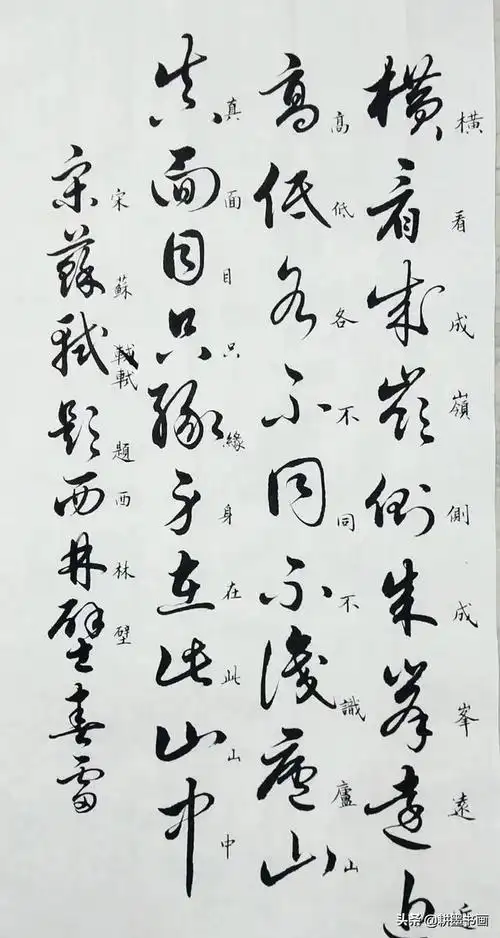 橫看成嶺側成峯遠近
高低各不同不識廬山
真面目只緣身在此山中
宋蘇軾題西林壁春雷
橫看成嶺側成峯遠近
高低各不同不識廬山
真面目只緣身在此山中
宋蘇軾軾題西林壁
头条@耕墨书画